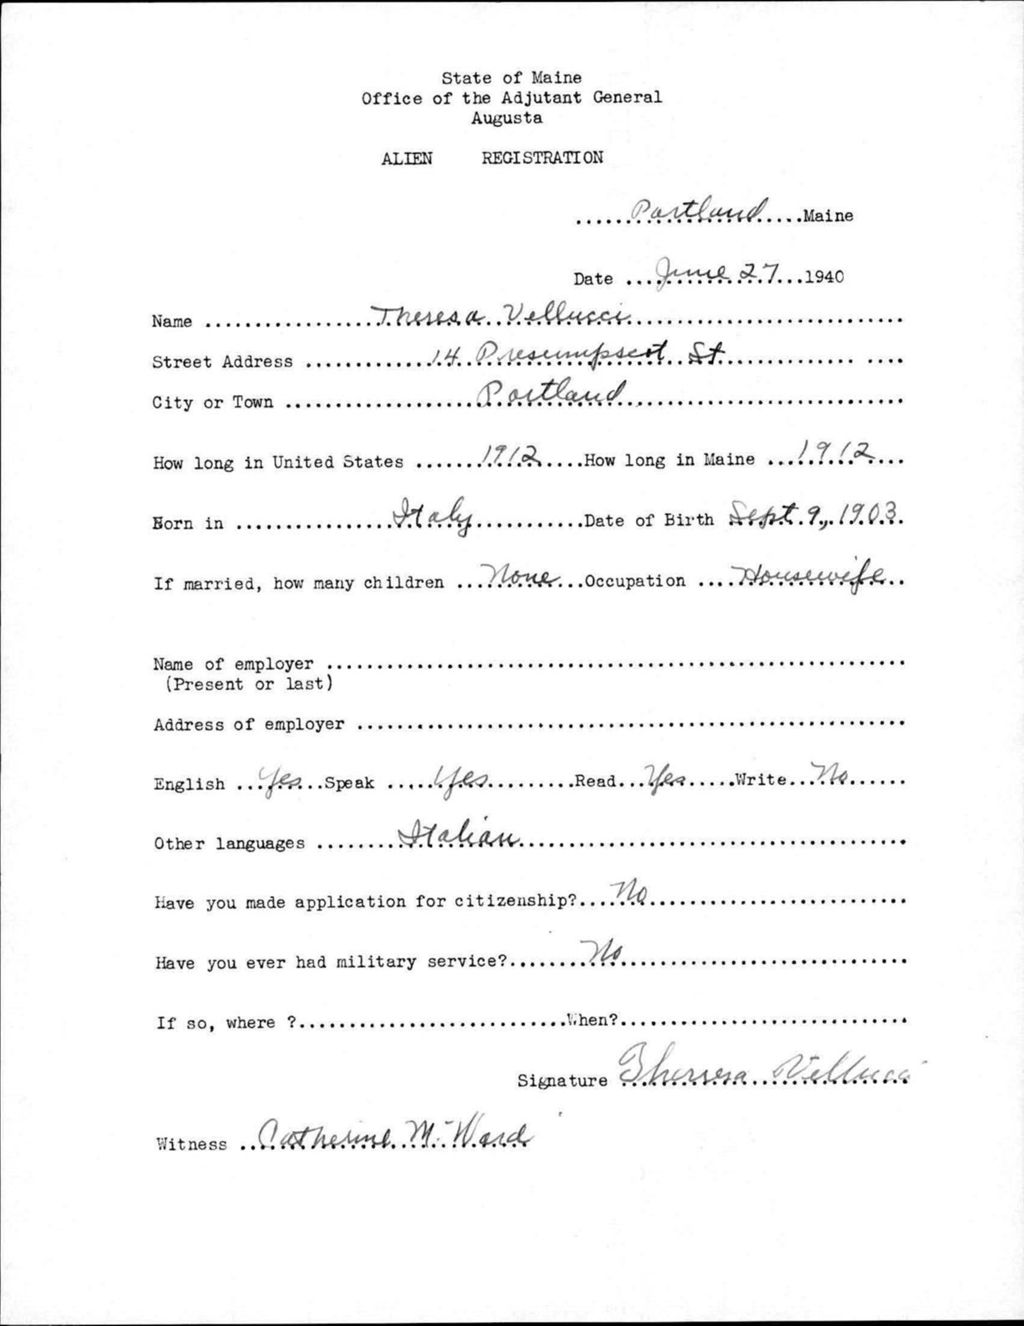 State of Maine
Office of the Adjutant General
Augusta
ALIEN REGISTRATION
......Portland.....Maine
Date ...June 27...1940
Name .................Theresa Vellucci...........................
Street Address ............14 Presumpscot St............. ....
City or Town ...................Portland............................
How long in United States .......1912.....How long in Maine ...1912....
Born in ................Italy............Date of Birth Sept. 9, 1903.
If married, how many children ...None...Occupation ....Housewife..
Name of employer ..........................................................
(Present or last)
Address of employer .......................................................
English ...Yes...Speak .....Yes..........Read...Yes.....Write...No......
Other languages ........Italian.......................................
Have you made application for citizenship?....No..........................
Have you ever had military service?........No............................
If so, where ?...........................When?.............................
Signature Therresa Vellucci
Witness ..Catherine M. Ward